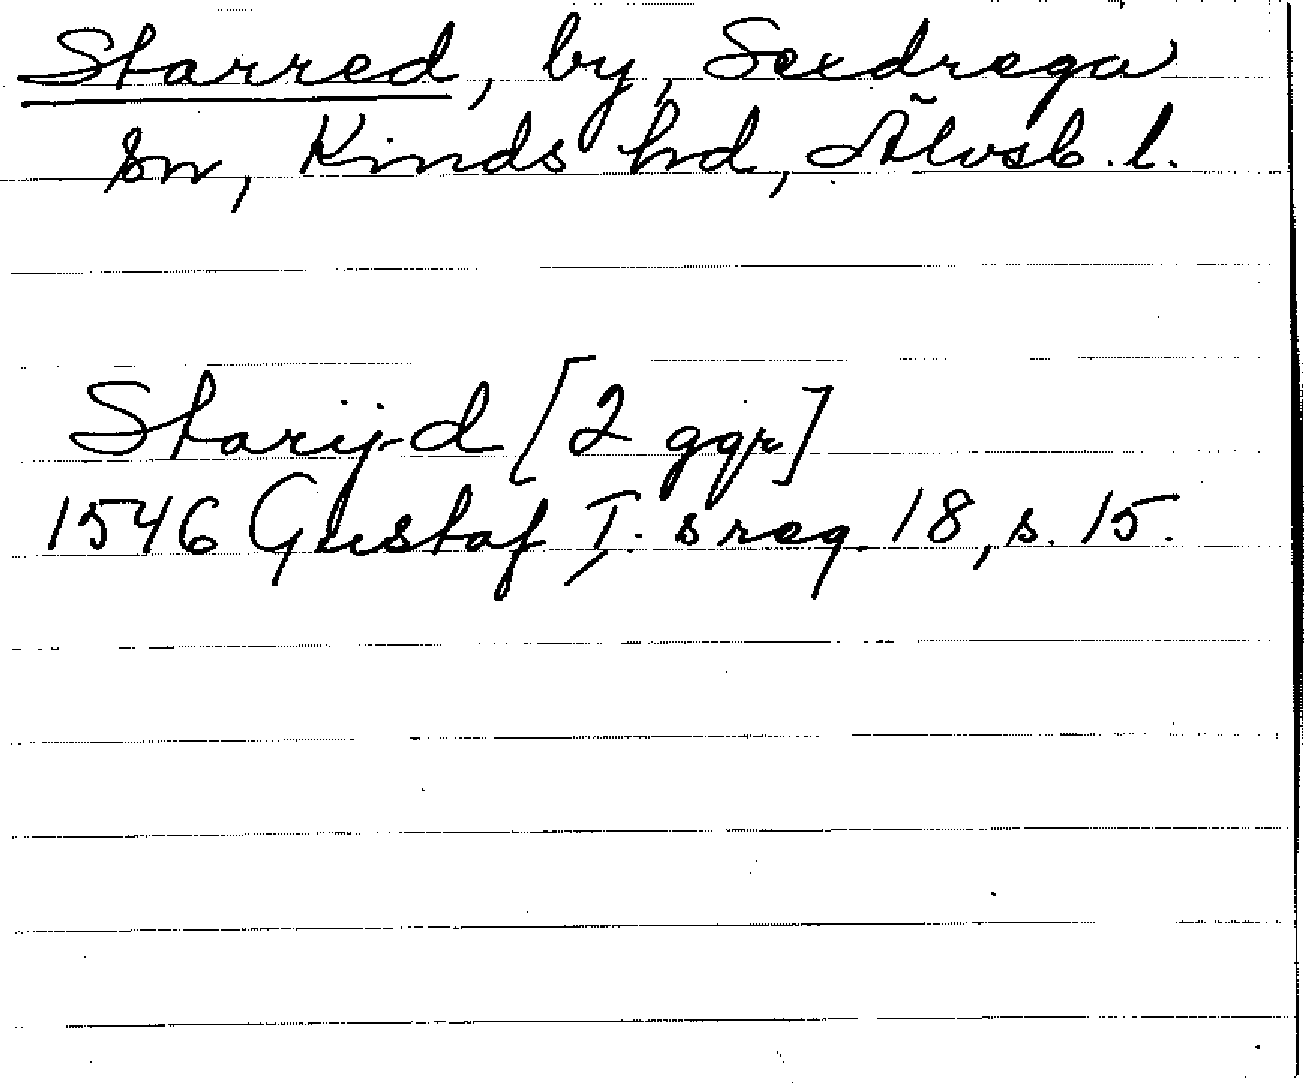 Starred, by, Sexdrega
sn, Kinds hd, Älvsb. l.
Starij-d [2 ggr]
1546 Gustaf I. s reg. 18, s. 15.